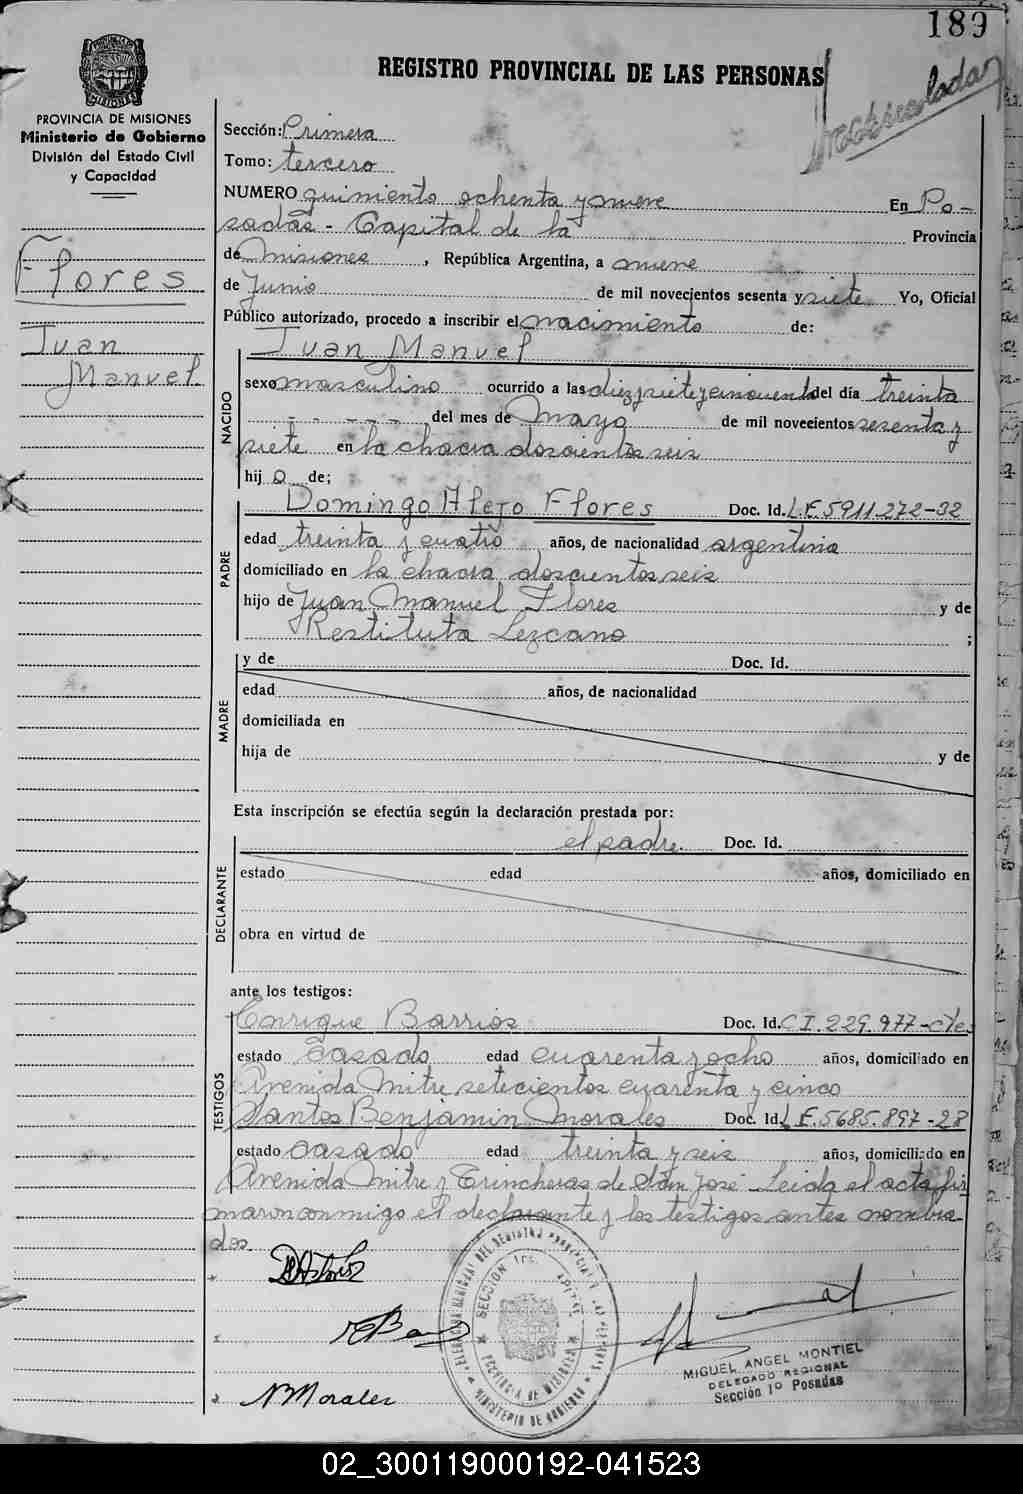 189
PROVINCIA DE MISIONES
Ministerio de Gobierno
División del Estado Civil
y Capacidad
REGISTRO PROVINCIAL DE LAS PERSONAS
Sección: Primera
Tomo: tercero
NUMERO quiniento ochenta y nueve En Po-
sadas - Capital de la Provincia
de Misiones, República Argentina, a nueve
de Junio de mil novecientos sesenta y siete Yo, Oficial
Público autorizado, procedo a inscribir el nacimiento de:
Flores
Juan
Manuel
NACIDO
Juan Manuel
sexo masculino ocurrido a las diez y siete y cincuenta del día treinta
del mes de Mayo de mil novecientos sesenta y
siete en la chacra doscientos seis
hij o de;
PADRE
Domingo Alejo Flores Doc. Id. L.E. 5911.272-32
edad treinta y cuatro años, de nacionalidad argentina
domiciliado en la chacra doscientos seis
hijo de Juan Manuel Flores y de
Restituta Lezcano ;
MADRE
y de Doc. Id.
edad años, de nacionalidad
domiciliada en
hija de y de
Esta inscripción se efectúa según la declaración prestada por:
DECLARANTE
el padre. Doc. Id.
estado edad años, domiciliado en
obra en virtud de
ante los testigos:
TESTIGOS
Enrique Barrios Doc. Id. C I. 229.977-
estado Casado edad cuarenta y ocho años, domiciliado en
Avenida Mitre setecientos cuarenta y cinco
Santos Benjamin Morales Doc. Id. L E. 5685.897-28
estado casado edad treinta y seis años, domiciliado en
Avenida Mitre y Trincheras de San José Leida el acta, fir
maron conmigo el declarante y los testigos antes nombra-
dos.
N B Morales
SECCIÓN CAPITAL
PROVINCIA DE MISIONES
MINISTERIO DE GOBIERNO
MIGUEL ANGEL MONTIEL
DELEGADO REGIONAL
Sección 1º Posadas
02_300119000192-041523